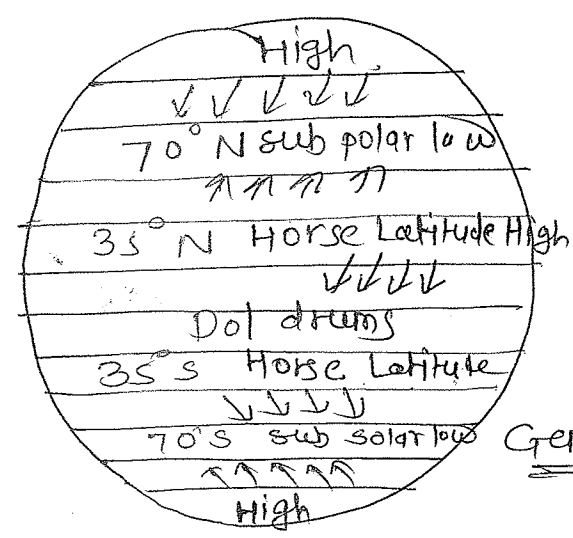 High
70° N sub polar low
35° N Horse Latitude High
Dol drums
35°s Horse Latitude
70°s sub solar low Ger
High